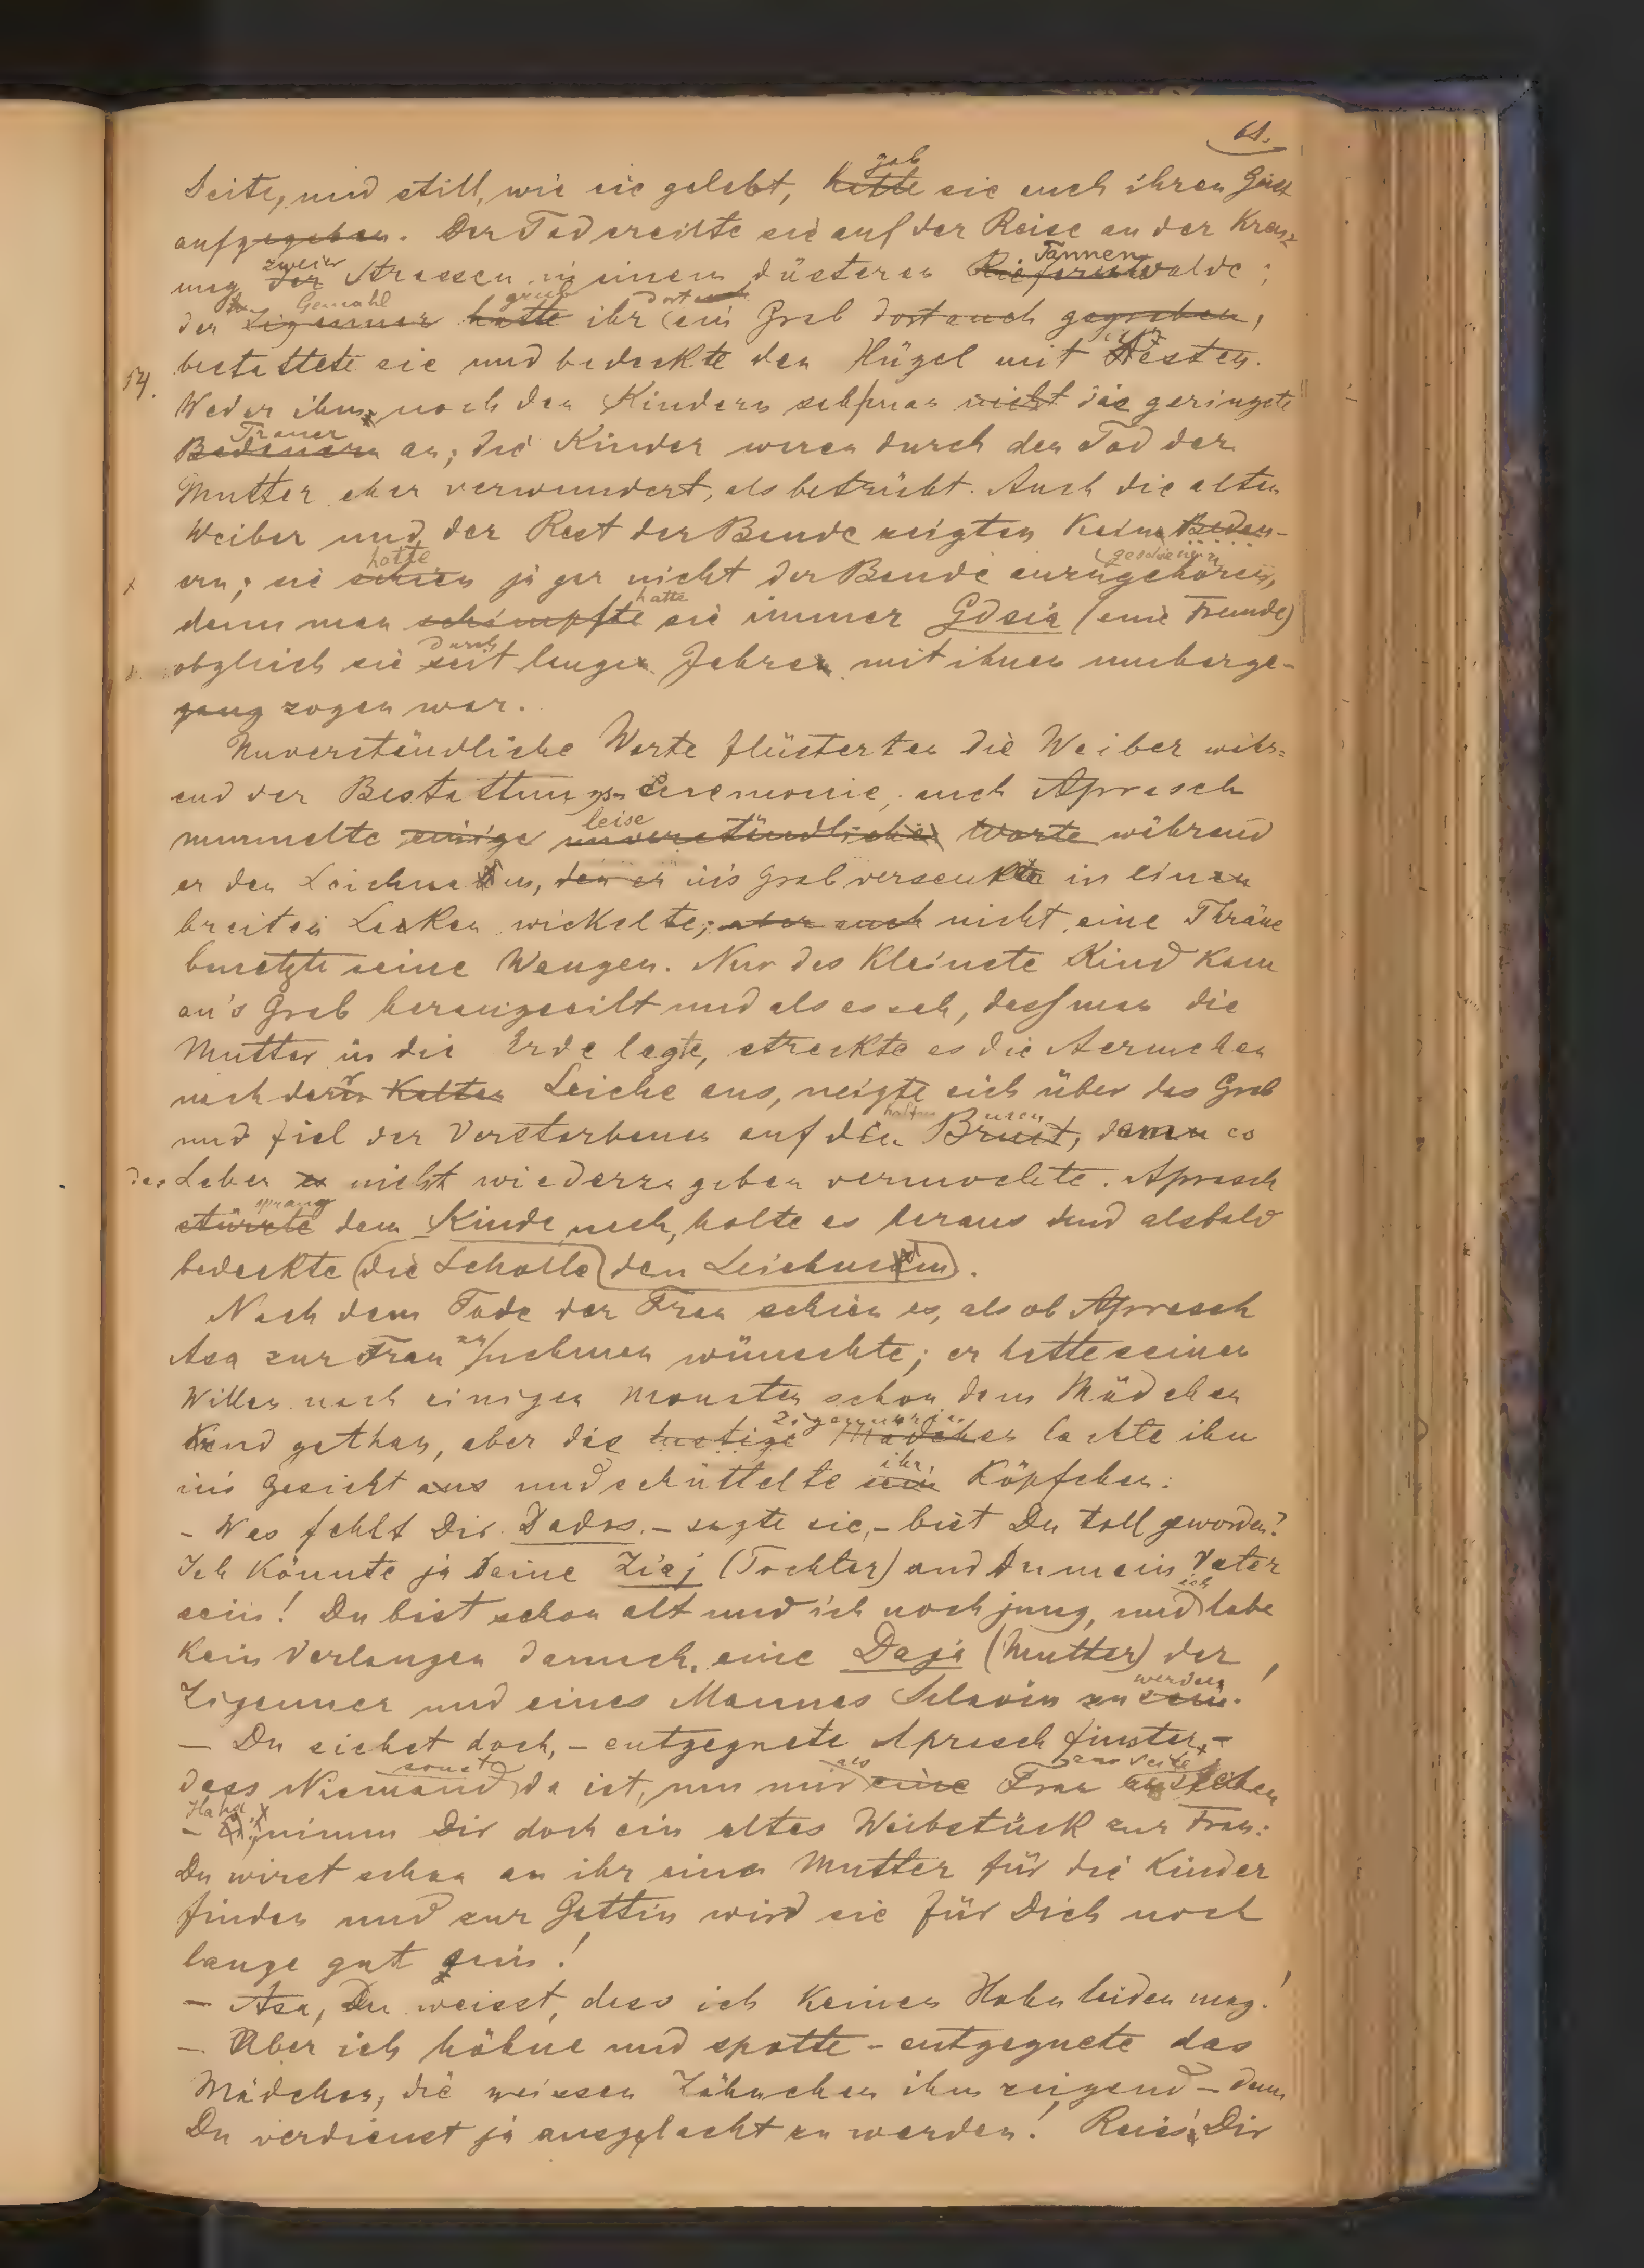 61.
Seite, und still, wie sie gelebt, hatte gab sie auch ihren Geist
aufgegeben. Der Tod ereilte sie auf der Reise an der Kreuz-
ung der zweier Strassen in einem düsteren Kiefernwalde Tannen;
der Zigeuner Gemahl hatte grub ihr ein Grab dort auch gegraben,
54. bestattete sie und bedeckte den Hügel mit Aesten.
Weder ihm, noch den Kindern sah man nicht die geringste
Bedauern Trauer an; die Kinder waren durch den Tod der
Mutter eher verwundert, als betrübt. Auch die alten
Weiber und der Rest der Bande zeigten kein Bedau-
x ern; sie schien hatte ja gar nicht der Bande anzugehören geschienen,
denn man schimpfte hatte sie immer Gdsia (eine Fremde)
obgleich sie seit durch langen Jahren mit ihnen umherge-
gang zogen war.
Unverständliche Worte flüsterten die Weiber währ-
end der Bestattungs-Ceremonie, auch Aprasch
murmelte einige leise unverständliche Worte während
er den Leichnam, den er in's Grab versenkte in einen
breiten Laken wickelte; aber auch nicht eine Thräne
benetzte seine Wangen. Nur das kleinste Kind kam
an's Grab herangeeilt und als es sah, dass man die
Mutter in die Erde legte, streckte es die Aermchen
nach der kalten Leiche aus, neigte sich über das Grab
und fiel der Verstorbenen auf den kalten Brust Busen, dem es
das Leben es nicht wiederzugeben vermochte. Aprasch
stürzte sprang dem Kinde nach, holte es heraus und alsbald
bedeckte die Scholle den Leichnam.
Nach dem Tode der Frau schien es, als ob Aprasch
Asa zur Frau zu nehmen wünschte; er hatte seinen
Willen nach einigen Monaten schon dem Mädchen
kund gethan, aber die lustige Mädchen Zigeunerin lachte ihn
in's Gesicht aus und schüttelte sein ihr Köpfchen:
- Was fehlt Dir Dados, - sagte sie, - bist Du toll geworden?
Ich könnte ja Deine Ziaj (Tochter) und Du mein Vater
sein! Du bist schon alt und ich noch jung, und ich habe
kein Verlangen darnach, eine Daja (Mutter) der
Zigeuner und eines Mannes Sclavin zu sein werden!
- Du siehst doch, - entgegnete Aprasch finster, -
dass Niemand sonst da ist, um mir als eine Frau zur Seite
- Haha, nimm Dir doch ein altes Weibstück zur Frau:
Du wirst schon an ihr eine Mutter für die Kinder
finden und zur Gattin wird sie für Dich noch
lange gut sein!
- Asa, Du weisst, dass ich keinen Hohn leiden mag!
- Aber ich höhne und spotte - entgegnete das
Mädchen, die weissen Zähnchen ihm zeigend - denn
Du verdienst ja ausgelacht zu werden! Reiss' Dir